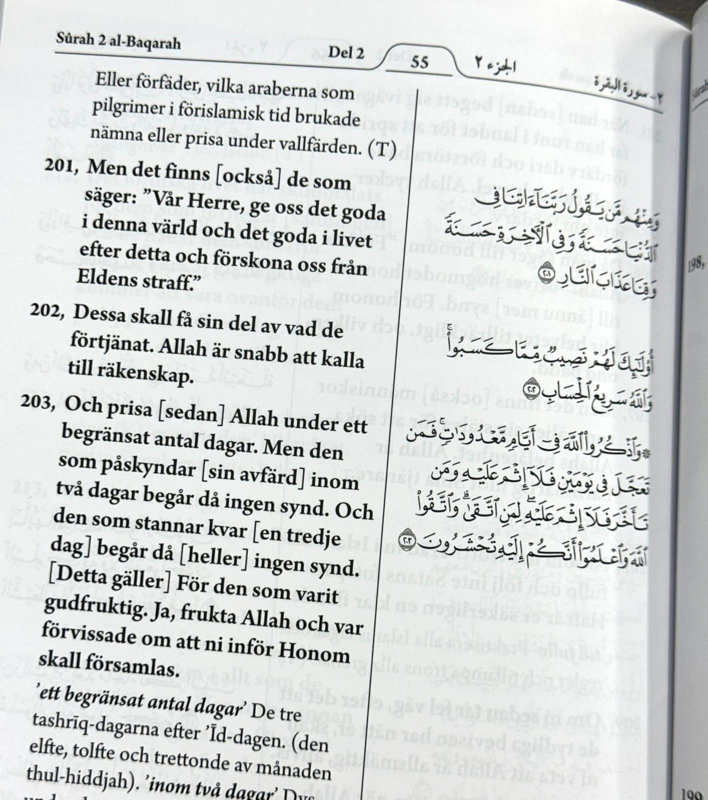 Sûrah 2 al-Baqarah
Del 2
55
الجزء ٢
٢- سورة البقرة
Eller förfäder, vilka araberna som
pilgrimer i förislamisk tid brukade
nämna eller prisa under vallfärden. (T)
201, Men det finns [också] de som
säger: ”Vår Herre, ge oss det goda
i denna värld och det goda i livet
efter detta och förskona oss från
Eldens straff.”
202, Dessa skall få sin del av vad de
förtjänat. Allah är snabb att kalla
till räkenskap.
203, Och prisa [sedan] Allah under ett
begränsat antal dagar. Men den
som påskyndar [sin avfärd] inom
två dagar begår då ingen synd. Och
den som stannar kvar [en tredje
dag] begår då [heller] ingen synd.
[Detta gäller] För den som varit
gudfruktig. Ja, frukta Allah och var
förvissade om att ni inför Honom
skall församlas.
’ett begränsat antal dagar’ De tre
tashrīq-dagarna efter ’Īd-dagen, (den
elfte, tolfte och trettonde av månaden
thul-hiddjah). ’inom två dagar’ Dvs
وَمِنْهُم مَّن يَقُولُ رَبَّنَآ ءَاتِنَا فِى
ٱلدُّنْيَا حَسَنَةً وَفِى ٱلْءَاخِرَةِ حَسَنَةً
وَقِنَا عَذَابَ ٱلنَّارِ ٢٠١
أُو۟لَٰٓئِكَ لَهُمْ نَصِيبٌ مِّمَّا كَسَبُوا۟ۚ
وَٱللَّهُ سَرِيعُ ٱلْحِسَابِ ٢٠٢
۞وَٱذْكُرُوا۟ ٱللَّهَ فِىٓ أَيَّامٍ مَّعْدُودَٰتٍۚ فَمَن
تَعَجَّلَ فِى يَوْمَيْنِ فَلَآ إِثْمَ عَلَيْهِ وَمَن
تَأَخَّرَ فَلَآ إِثْمَ عَلَيْهِۚ لِمَنِ ٱتَّقَىٰۗ وَٱتَّقُوا۟
ٱللَّهَ وَٱعْلَمُوٓا۟ أَنَّكُمْ إِلَيْهِ تُحْشَرُونَ ٢٠٣
198,
199